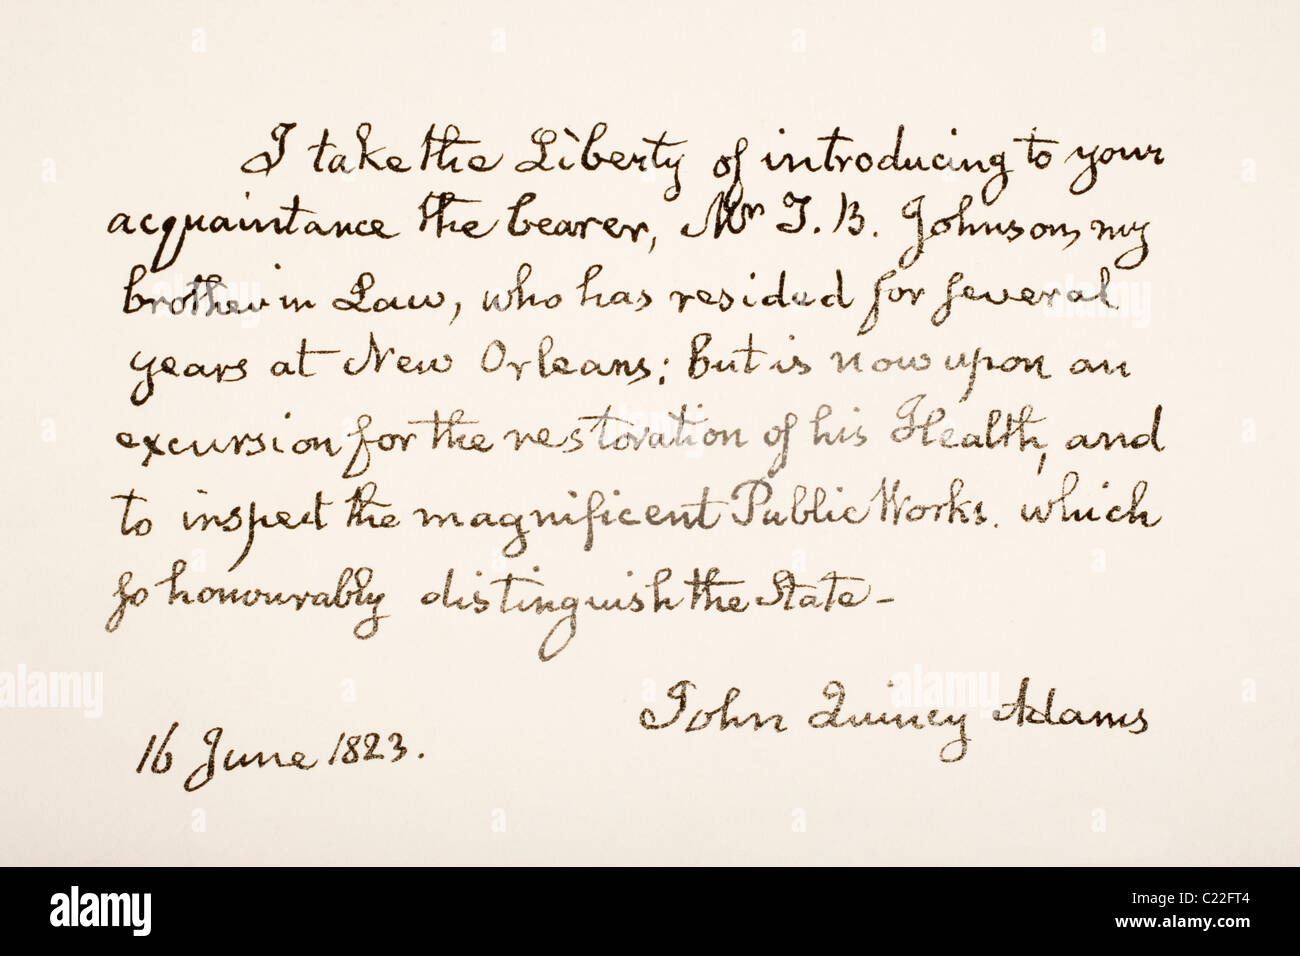 I take the Liberty of introducing to your
acquaintance the bearer, Mr T. B. Johnson, my
brother in Law, who has resided for several
years at New Orleans; But is now upon an
excursion for the restoration of his Health, and
to inspect the magnificent Public Works. which
so honourably distinguish the State -
John Quincy Adams
16 June 1823.
alamy
Image ID: C22FT4
www.alamy.com